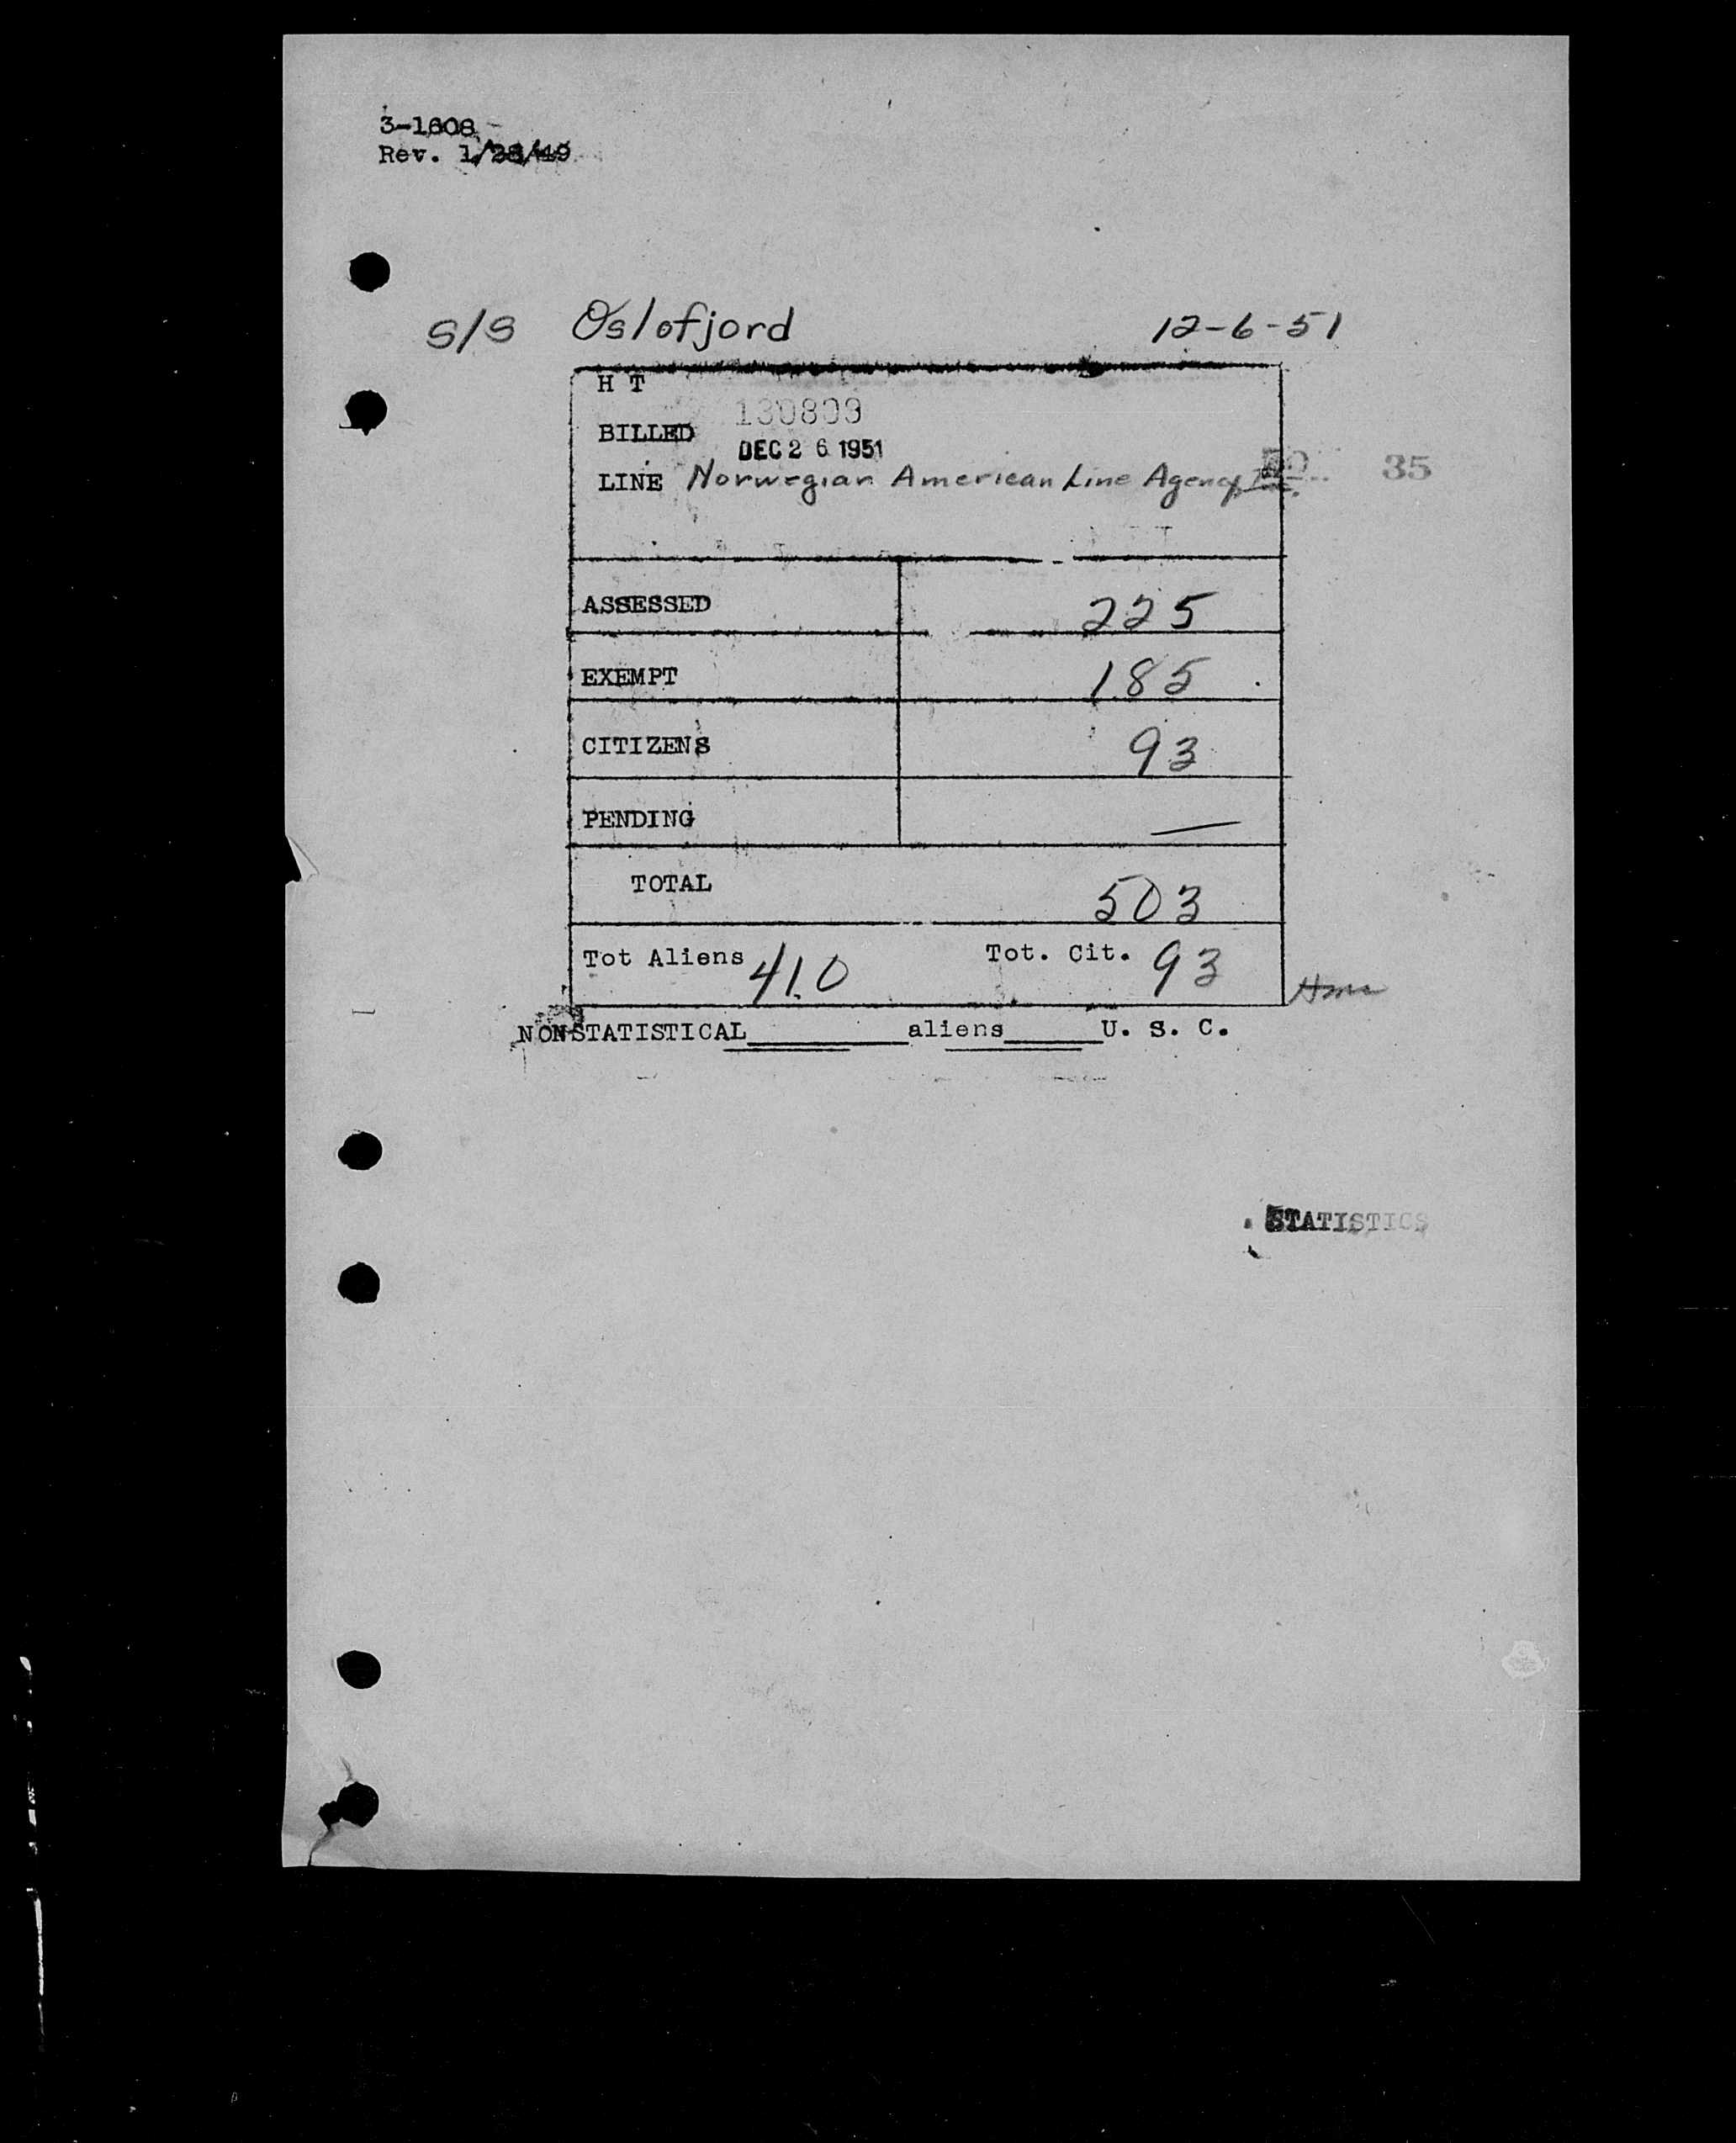 3-1608
Rev. 1/28/49
S/S Oslofjord 12-6-51
H T
130809
BILLED
DEC 26 1951
LINE Norwegian American Line Agency 35
ASSESSED 225
EXEMPT 185
CITIZENS 93
PENDING —
TOTAL 503
Tot Aliens 410 Tot. Cit. 93
NON-STATISTICAL__________aliens______U. S. C.
STATISTICS